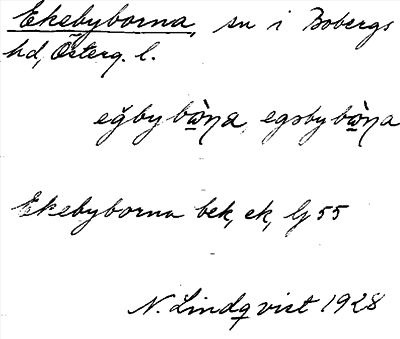 Ekebyborna, sn i Bobergs
hd, Österg. l.
eg̀bybὼ̲ɳa, egəbybὼ̲ɳa
Ekebyborna bek, ek, Lg 55
N. Lindqvist 1928